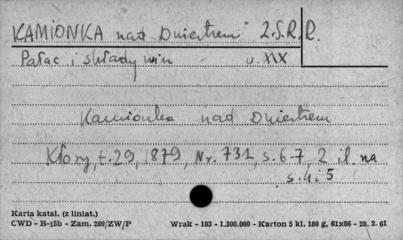 KAMIONKA nad Dniestrem Z.S.R.R.
Pałac i składy win w. XIX
Kamionka nad Dniestrem
Kłosy, t. 29, 1879, Nr. 731, s. 6-7, 2 il. na
s. 4 i 5
Karta katal. (z liniat.)
CWD - B-15b - Zam. 289/ZW/P Wrak - 183 - 1.300.000 - Karton 5 kl. 180 g, 61x86 - 28. 2. 61